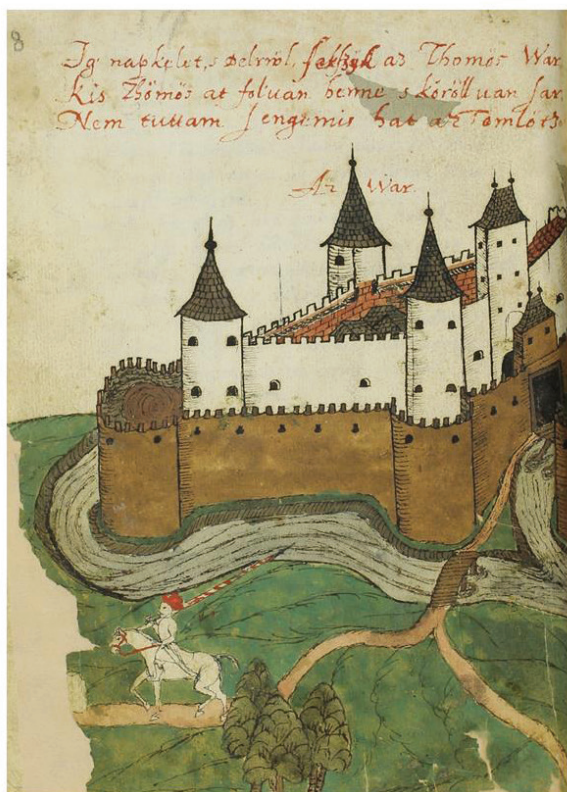 8
Ig napkelet, s delrwl, fekszyk az Thömös War
Kis Thömös at foluan benne s köröll uan sar
Nem tuttam s engemis hat az Tömlötz
Az War